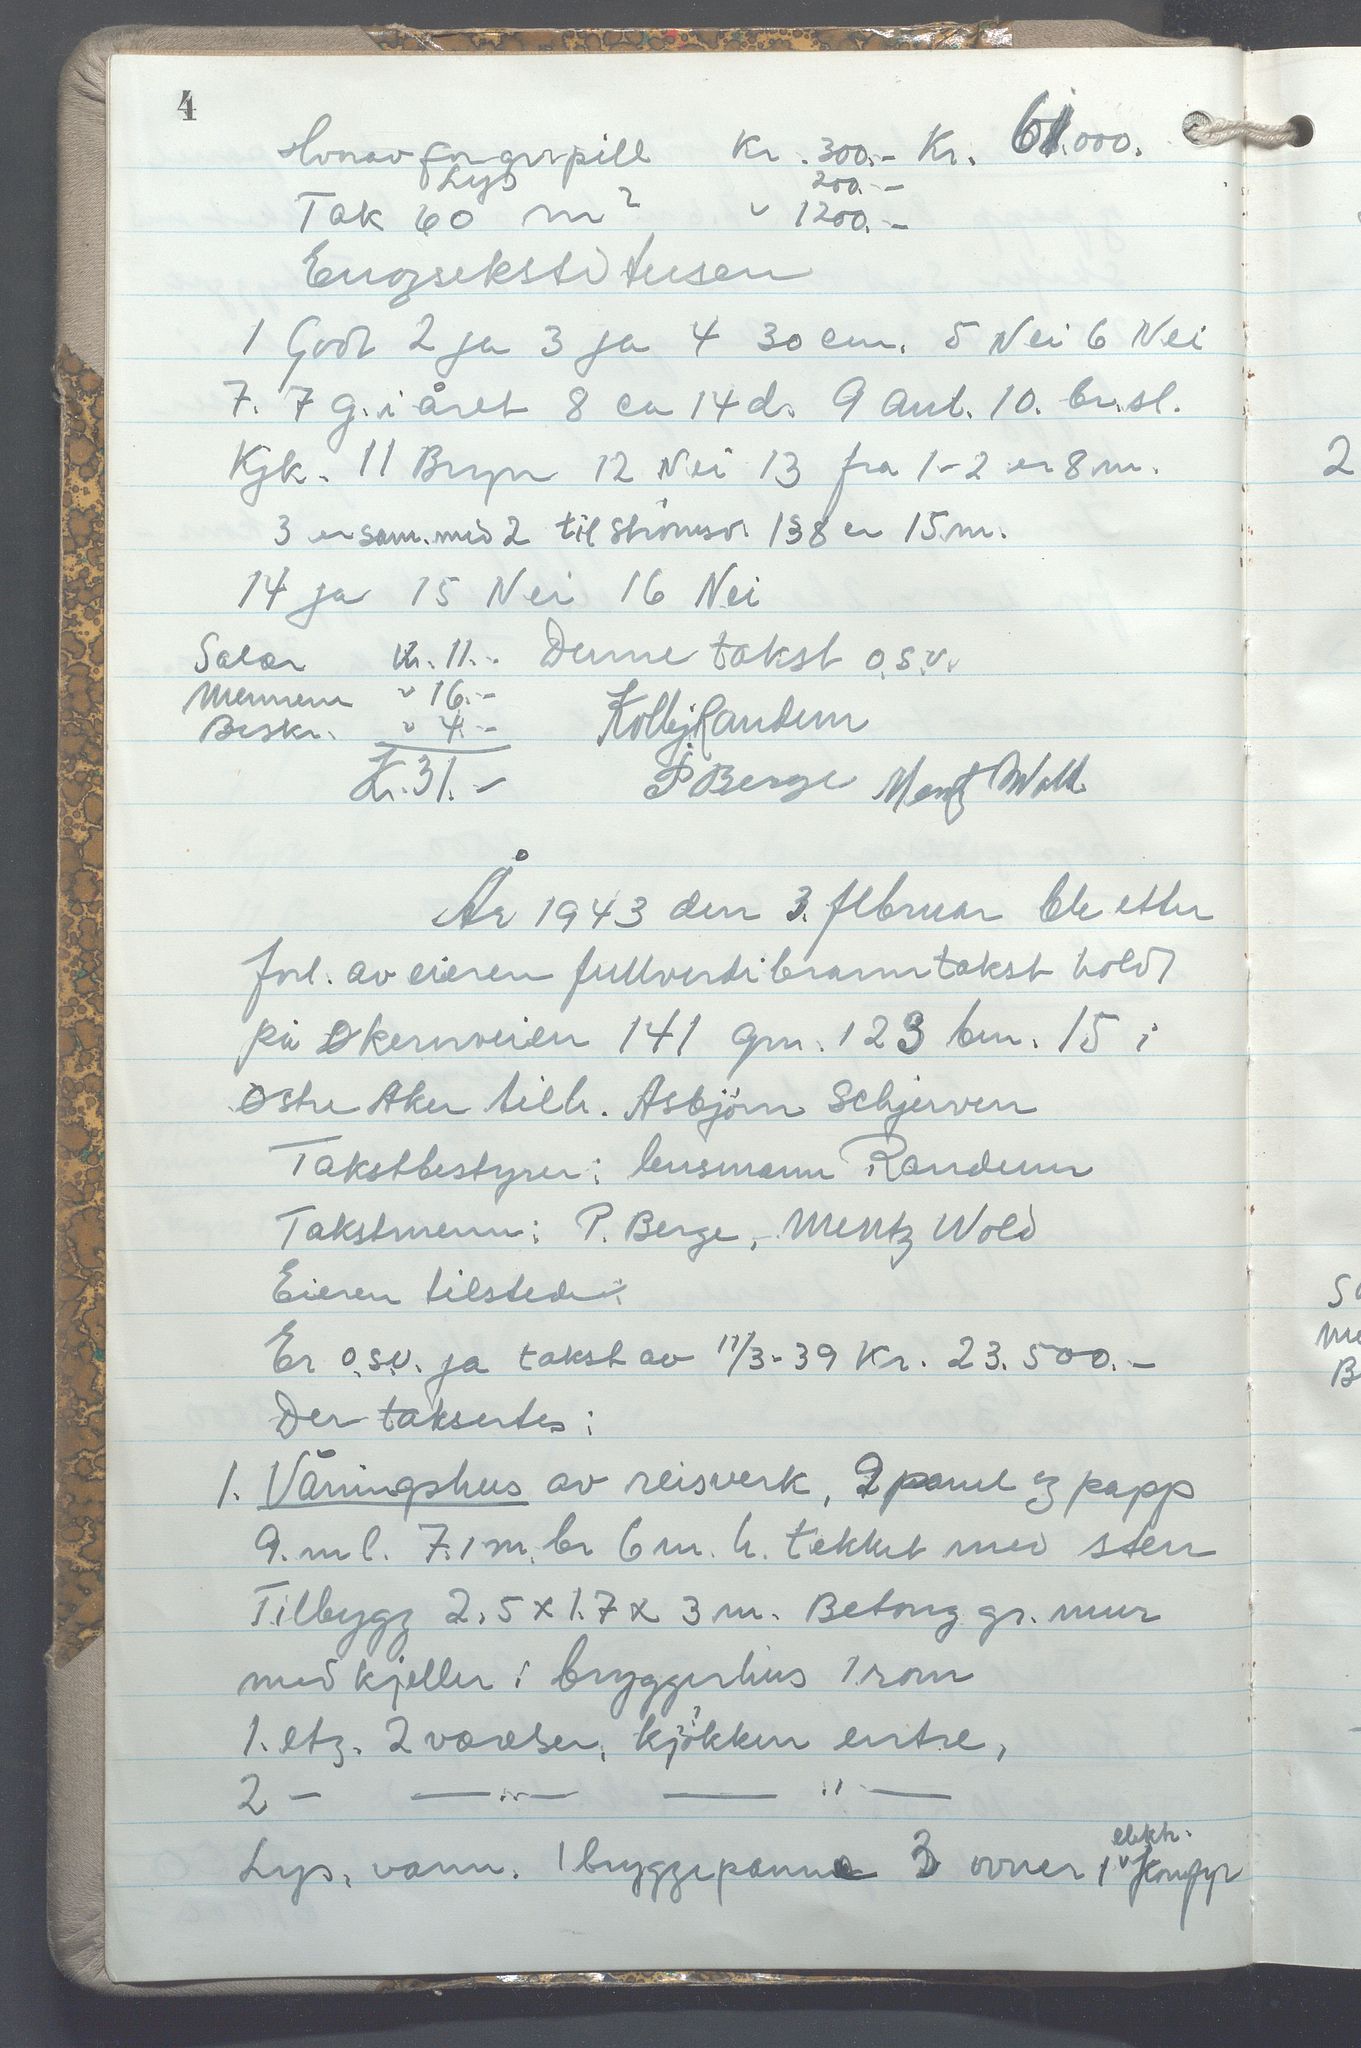 4
Hvorav for grspill Kr. 300.- Kr. 61.000.
Lys 200.-
Tak 60 m² " 1200.-
Enogseksti tusen
1 Godt 2 ja 3 ja 4 30 cm. 5 Nei 6 Nei
7. 7 g. i året 8 ca 14 d. 9 Ant. 10. br.sl.
Kjk. 11 Bryn 12 Nei 13 fra 1-2 er 8 m.
3 er sam. med 2 til Strömsv. 138 er 15 m.
14 ja 15 Nei 16 Nei
Salær Kr. 11.- Denne takst o.s.v.
Mennene " 16.-
Beskr. " 4.- Kolbj Randem
Kr. 31.- P Berge Mentz Wold
År 1943 den 3. februar ble etter
forl. av eieren fullverdibranntakst holdt
på Økernveien 141 gn. 123 bn. 15 i
Østre Aker tilh. Asbjörn Schjerven
Takstbestyrer: lensmann Randem
Takstmenn: P. Berge, Mentz Wold
Eieren tilstede.
Er o.s.v. ja takst av 11/3-39 Kr. 23.500.-
Der taksertes:
1. Våningshus av reisverk, 2 panel og papp
9. m l. 7.1 m. br 6 m. h. tekket med sten
Tilbygg 2.5 x 1.7 x 3 m. Betong gr. mur
med kjeller i bryggerhus 1 rom
1. etg. 2 værelser, kjökken entre,
2 - — " — — " —
Lys, vann. 1 bryggepanne 3 ovner 1 elektr. Komfyr